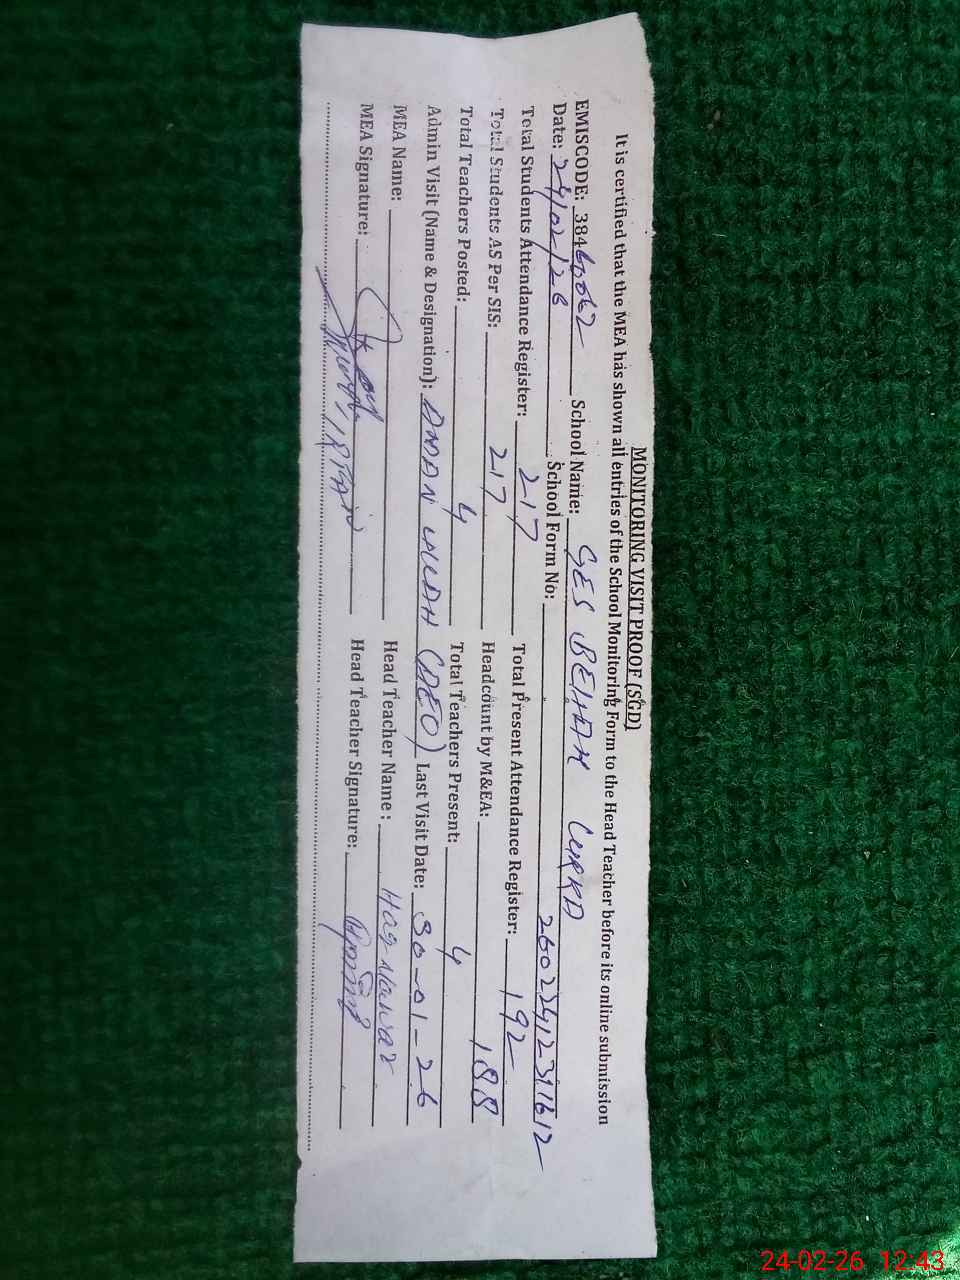 MONITORING VISIT PROOF (SGD)
It is certified that the MEA has shown all entries of the School Monitoring Form to the Head Teacher before its online submission
EMISCODE: 38460062 School Name: GES BEHAK LURKA
Date: 24/02/26 School Form No: 26022412311612
Total Students Attendance Register: 217 Total Present Attendance Register: 192
Total Students AS Per SIS: 217 Headcount by M&EA: 188
Total Teachers Posted: 4 Total Teachers Present: 4
Admin Visit (Name & Designation): AMAN ULLAH (AEO) Last Visit Date: 30-01-26
MEA Name: Head Teacher Name: Haq Nawaz
MEA Signature: IRFAN Head Teacher Signature:
24-02-26 12:43